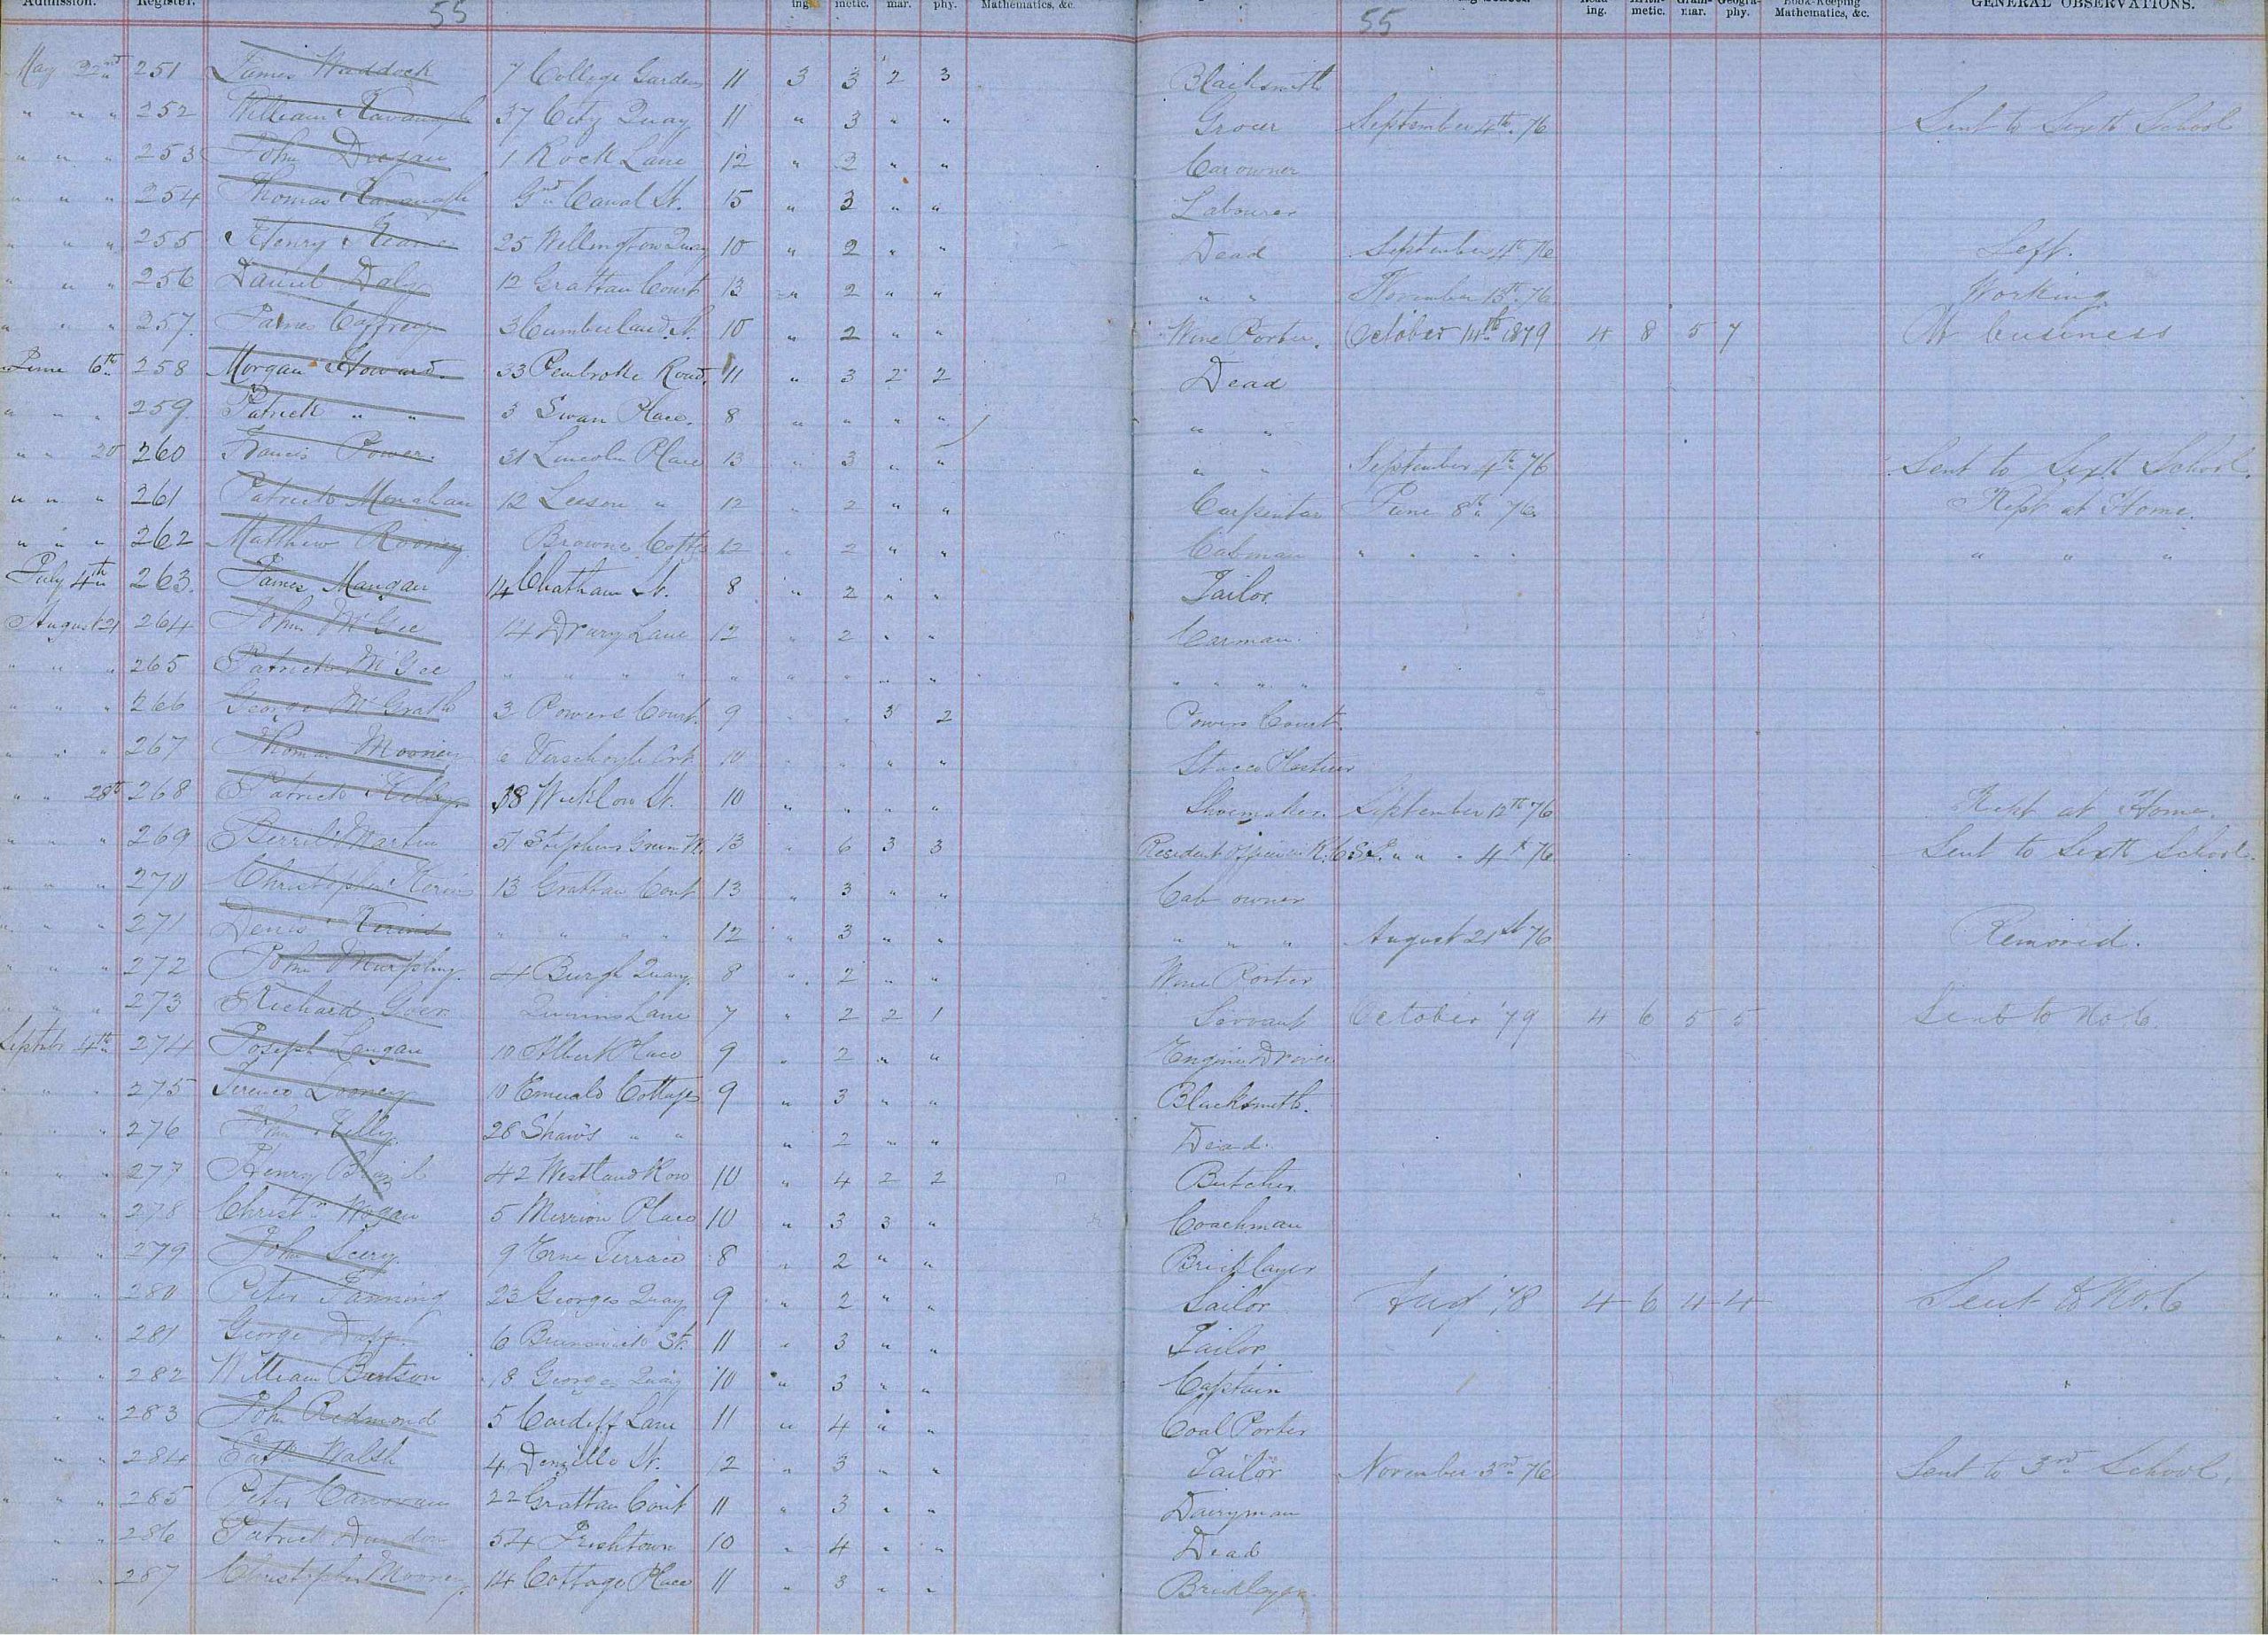 Admission. Register. 55 ing. metic. mar. phy. Mathematics, &c. 55 ing. metic. mar. phy. Book-Keeping Mathematics, &c. GENERAL OBSERVATIONS.
May 22nd 251 James Waddock 7 College Gardens 11 3 3 2 3 Blacksmith
" " " 252 William Kavanagh 37 City Quay 11 " 3 " " Grocer September 4th 76 Sent to Sixth School
" " " 253 John 1 Rock Lane 12 " 3 " " Car owner
" " " 254 Thomas Kavanagh Gd Canal St. 15 " 3 " " Labourer
" " " 255 Henry Keane 25 Wellington Quay 10 " 2 " " Dead September 4th 76 Left.
" " " 256 Daniel Daly 12 Grattan Court 13 " 2 " " " " November 13th 76 Working
" " " 257. James Caffrey 3 Cumberland St. 10 " 2 " " Wine Porter. October 14th 1879 4 8 5 7 At business
June 6th 258 Morgan Howard 33 Pembroke Road. 11 " 3 2 2 Dead
" " " 259. Patrick " " 3 Swan Place. 8 " " " " " "
" " 20 260 Francis Power. 31 Lincoln Place 13 " 3 " " " " September 4th 76 Sent to Sixth School.
" " " 261 Patrick Monahan 12 Leeson " 12 " 2 " " Carpenter June 8th 76 Kept at Home.
" " " 262 Matthew Rooney Browns Cottgs 12 " 2 " " Cabman " " " " " " "
July 4th 263. James Mangan 14 Chatham St. 8 " 2 " " Tailor
August 21 264 John McGee 14 Drury Lane 12 " 2 " " Carman
" " " 265 Patrick McGee " " " " " " " " " " " " "
" " " 266 George McGrath 3 Powers Court 9 " " 3 2 Powers Court
" " " 267 Thomas Mooney 6 Verschoyle Crt 10 " " " " Stucco Plasterer
" " 28th 268 Patrick Kelly 38 Wicklow St. 10 " " " " Shoemaker. September 12th 76 Kept at Home.
" " " 269 Martin 51 Stephens Green N. 13 " 6 3 3 Resident Officer in R.C.S.I. " " " 4th 76 Sent to Sixth School.
" " " 270 Christopher Kerin 13 Grattan Court 13 " 3 " " Cab owner
" " " 271 Denis Kerins " " " " 12 " 3 " " " " " August 21st 76 Removed.
" " " 272 John Murphy. 4 Burgh Quay. 8 " 2 " " Wine Porter
" " " 273 Richard Goer Quinns Lane 7 " 2 2 1 Servant October '79 4 6 5 5 Sent to No 6.
Septmbr 4th 274 Joseph Langan 10 Albert Place 9 " 2 " " Engine Driver
" " " 275 Terence Looney 10 Emerald Cottages 9 " 3 " " Blacksmith.
" " " 276 John Kelly. 28 Shaws " " " 2 " " Dead.
" " " 277 Henry 42 Westland Row 10 " 4 2 2 Butcher
" " " 278 Christr Hogan 5 Merrion Place 10 " 3 3 " Coachman
" " " 279 John Leery 9 Erne Terrace 8 " 2 " " Bricklayer
" " " 280 Peter Fanning 23 Georges Quay 9 " 2 " " Sailor Aug 78 4 6 4 4 Sent to No. 6
" " " 281 George Duff. 6 Brunswick St. 11 " 3 " " Tailor
" " 282 William Bertson 18 Georges Quay 10 " 3 " " Captain
" " 283 John Redmond 5 Cardiff Lane 11 " 4 " " Coal Porter
" " 284 Patk Walsh 4 Denzille St. 12 " 3 " " Tailor November 3rd 76 Sent to 3rd School.
" " " 285 Peter Canovan 22 Grattan Court 11 " 3 " " Dairyman
" " 286 Patrick Dundon 54 Irishtown 10 " 4 " " Dead
" " 287 Christopher Mooney. 14 Cottage Place 11 " 3 " " Bricklayer